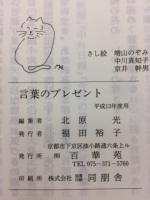 さし絵 増山のぞみ
中川真知子
京井 幹男
言葉のプレゼント
平成13年度用
編集者 北原 光
発行者 福田裕子
京都市下京区油小路通六条上ル
発行所 ㈱百華苑
TEL 075-371-5760
印刷所 株式会社 同朋舎